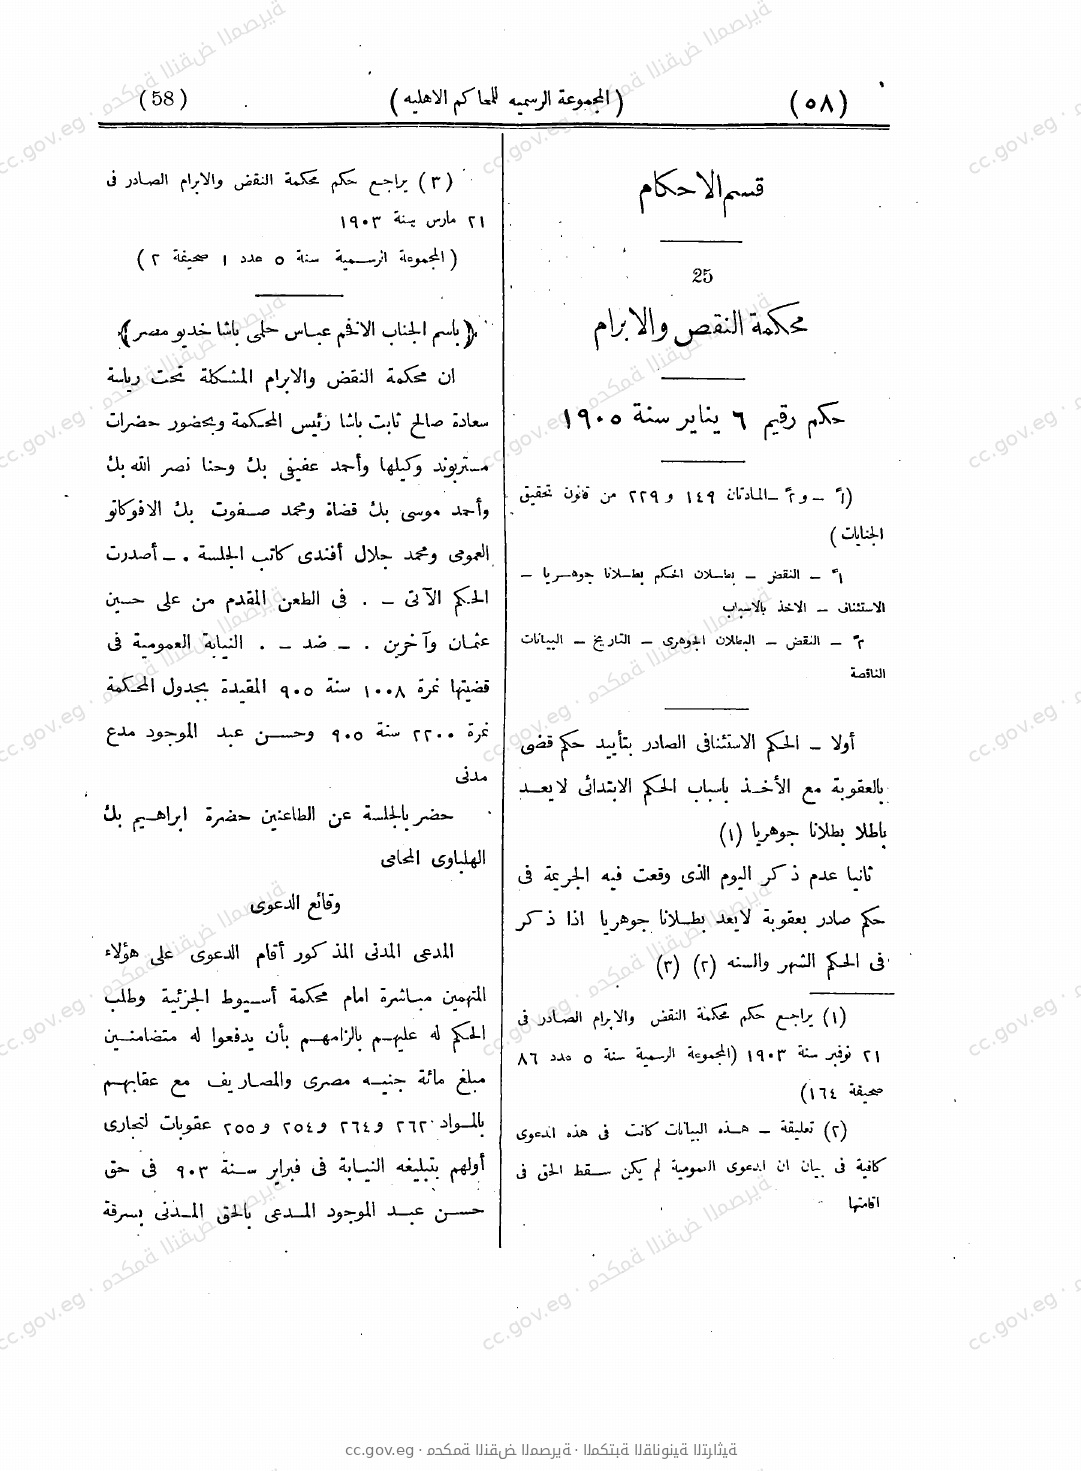 (٥٨)
(المجموعة الرسميه للمحاكم الاهليه)
(58)
قسم الاحكام
25
محكمة النقض والابرام
حكم رقيم ٦ يناير سنة ١٩٠٥
(١ً – و٢ً – المادتان ١٤٩ و ٢٢٩ من قانون تحقيق
الجنايات)
١ً – النقض – بطلان الحكم بطلانا جوهريا –
الاستئناف – الاخذ بالاسباب
٢ً – النقض – البطلان الجوهرى – التاريخ – البيانات
الناقصة
أولا – الحكم الاستئنافى الصادر بتأييد حكم قضى
بالعقوبة مع الأخذ باسباب الحكم الابتدائى لا يعد
باطلا بطلانا جوهريا (١)
ثانيا عدم ذكر اليوم الذى وقعت فيه الجريمة فى
حكم صادر بعقوبة لايعد بطلانا جوهريا اذا ذكر
فى الحكم الشهر والسنه (٢) (٣)
(١) يراجع حكم محكمة النقض والابرام الصادر فى
٢١ نوفبر سنة ١٩٠٣ (المجموعة الرسمية سنة ٥ عدد ٨٦
صحيفة ١٦٤)
(٢) تعليقة – هذه البيانات كانت فى هذه الدعوى
كافية فى بيان ان الدعوى العمومية لم يكن سقط الحق فى
اقامتها
(٣) يراجع حكم محكمة النقض والابرام الصادر فى
٢١ مارس سنة ١٩٠٣
(المجموعة الرسمية سنة ٥ عدد ١ صحيفة ٢)
﴿باسم الجناب الافخم عباس حلمى باشا خديو مصر﴾
ان محكمة النقض والابرام المشكلة تحت رياسة
سعادة صالح ثابت باشا رئيس المحكمة وبحضور حضرات
مستربوند وكيلها وأحمد عفيفى بك وحنا نصر الله بك
وأحمد موسى بك قضاة ومحمد صفوت بك الافوكاتو
العمومى ومحمد جلال أفندى كاتب الجلسة . – أصدرت
الحكم الآتى – . فى الطعن المقدم من على حسين
عثمان وآخرين . – ضد – . النيابة العمومية فى
قضيتها نمرة ١٠٠٨ سنة ٩٠٥ المقيدة بجدول المحكمة
نمرة ٢٢٠٠ سنة ٩٠٥ وحسن عبد الموجود مدع
مدنى
حضر بالجلسة عن الطاعنين حضرة ابراهيم بك
الهلباوى المحامى
وقائع الدعوى
المدعى المدنى المذكور أقام الدعوى على هؤلاء
المتهمين مباشرة امام محكمة أسيوط الجزئية وطلب
الحكم له عليهم بالزامهم بأن يدفعوا له متضامنين
مبلغ مائة جنيه مصرى والمصاريف مع عقابهم
بالمواد ٢٦٢ و٢٦٤ و٢٥٤ و٢٥٥ عقوبات لتجارى
أولهم بتبليغه النيابة فى فبراير سنة ٩٠٣ فى حق
حسن عبد الموجود المدعى بالحق المدنى بسرقة
cc.gov.eg · محكمة النقض المصرية · المكتبة القانونية التراثية